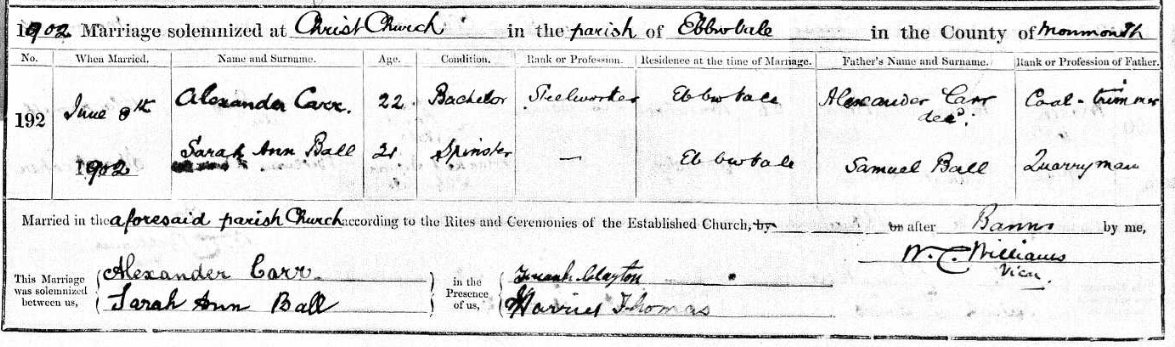 1902 Marriage solemnized at Christ Church in the parish of Ebbw Vale in the County of Monmouth
No. When Married. Name and Surname. Age. Condition. Rank or Profession. Residence at the time of Marriage. Father's Name and Surname. Rank or Profession of Father.
192 June 8th 1902
Alexander Carr. 22. Bachelor Steelworker Ebbw Vale Alexander Carr decd. Coal-trimmer
Sarah Ann Ball 21 Spinster — Ebbw Vale Samuel Ball Quarryman
Married in the aforesaid parish Church according to the Rites and Ceremonies of the Established Church, by or after Banns by me,
W. C. Williams
Vicar
This Marriage was solemnized between us,
Alexander Carr
Sarah Ann Ball
in the Presence of us,
Frank Clayton
Harriet Thomas